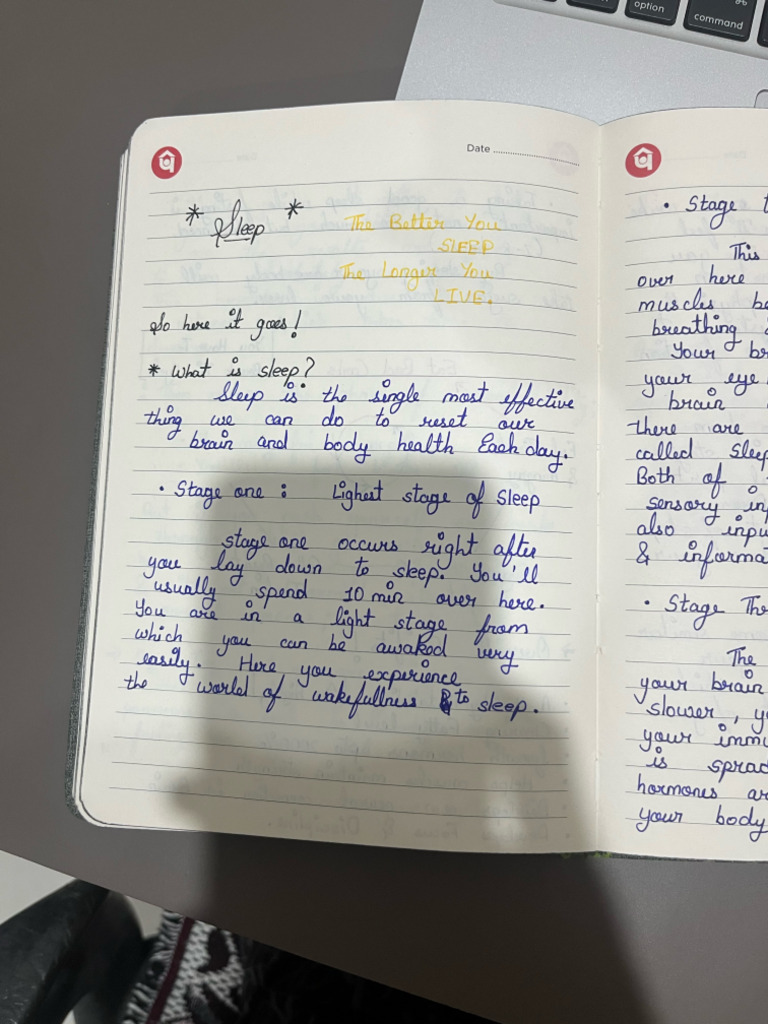 option
command
Date
* Sleep *
The Better You
SLEEP
The Longer You
LIVE.
So here it goes!
* What is sleep?
Sleep is the single most effective
thing we can do to reset our
brain and body health Each day.
• Stage one : Lighest stage of Sleep
stage one occurs right after
you lay down to sleep. You'll
usually spend 10 min over here.
You are in a light stage from
which you can be awaked very
easily. Here you experience
the world of wakefullness to sleep.
• Stage
This
over here
muscles
breathing
Your
your eye
brain
there are
called Sleep
Both of
sensory
also input
&
• Stage
The
your brain
slower,
your
is
hormones
your body